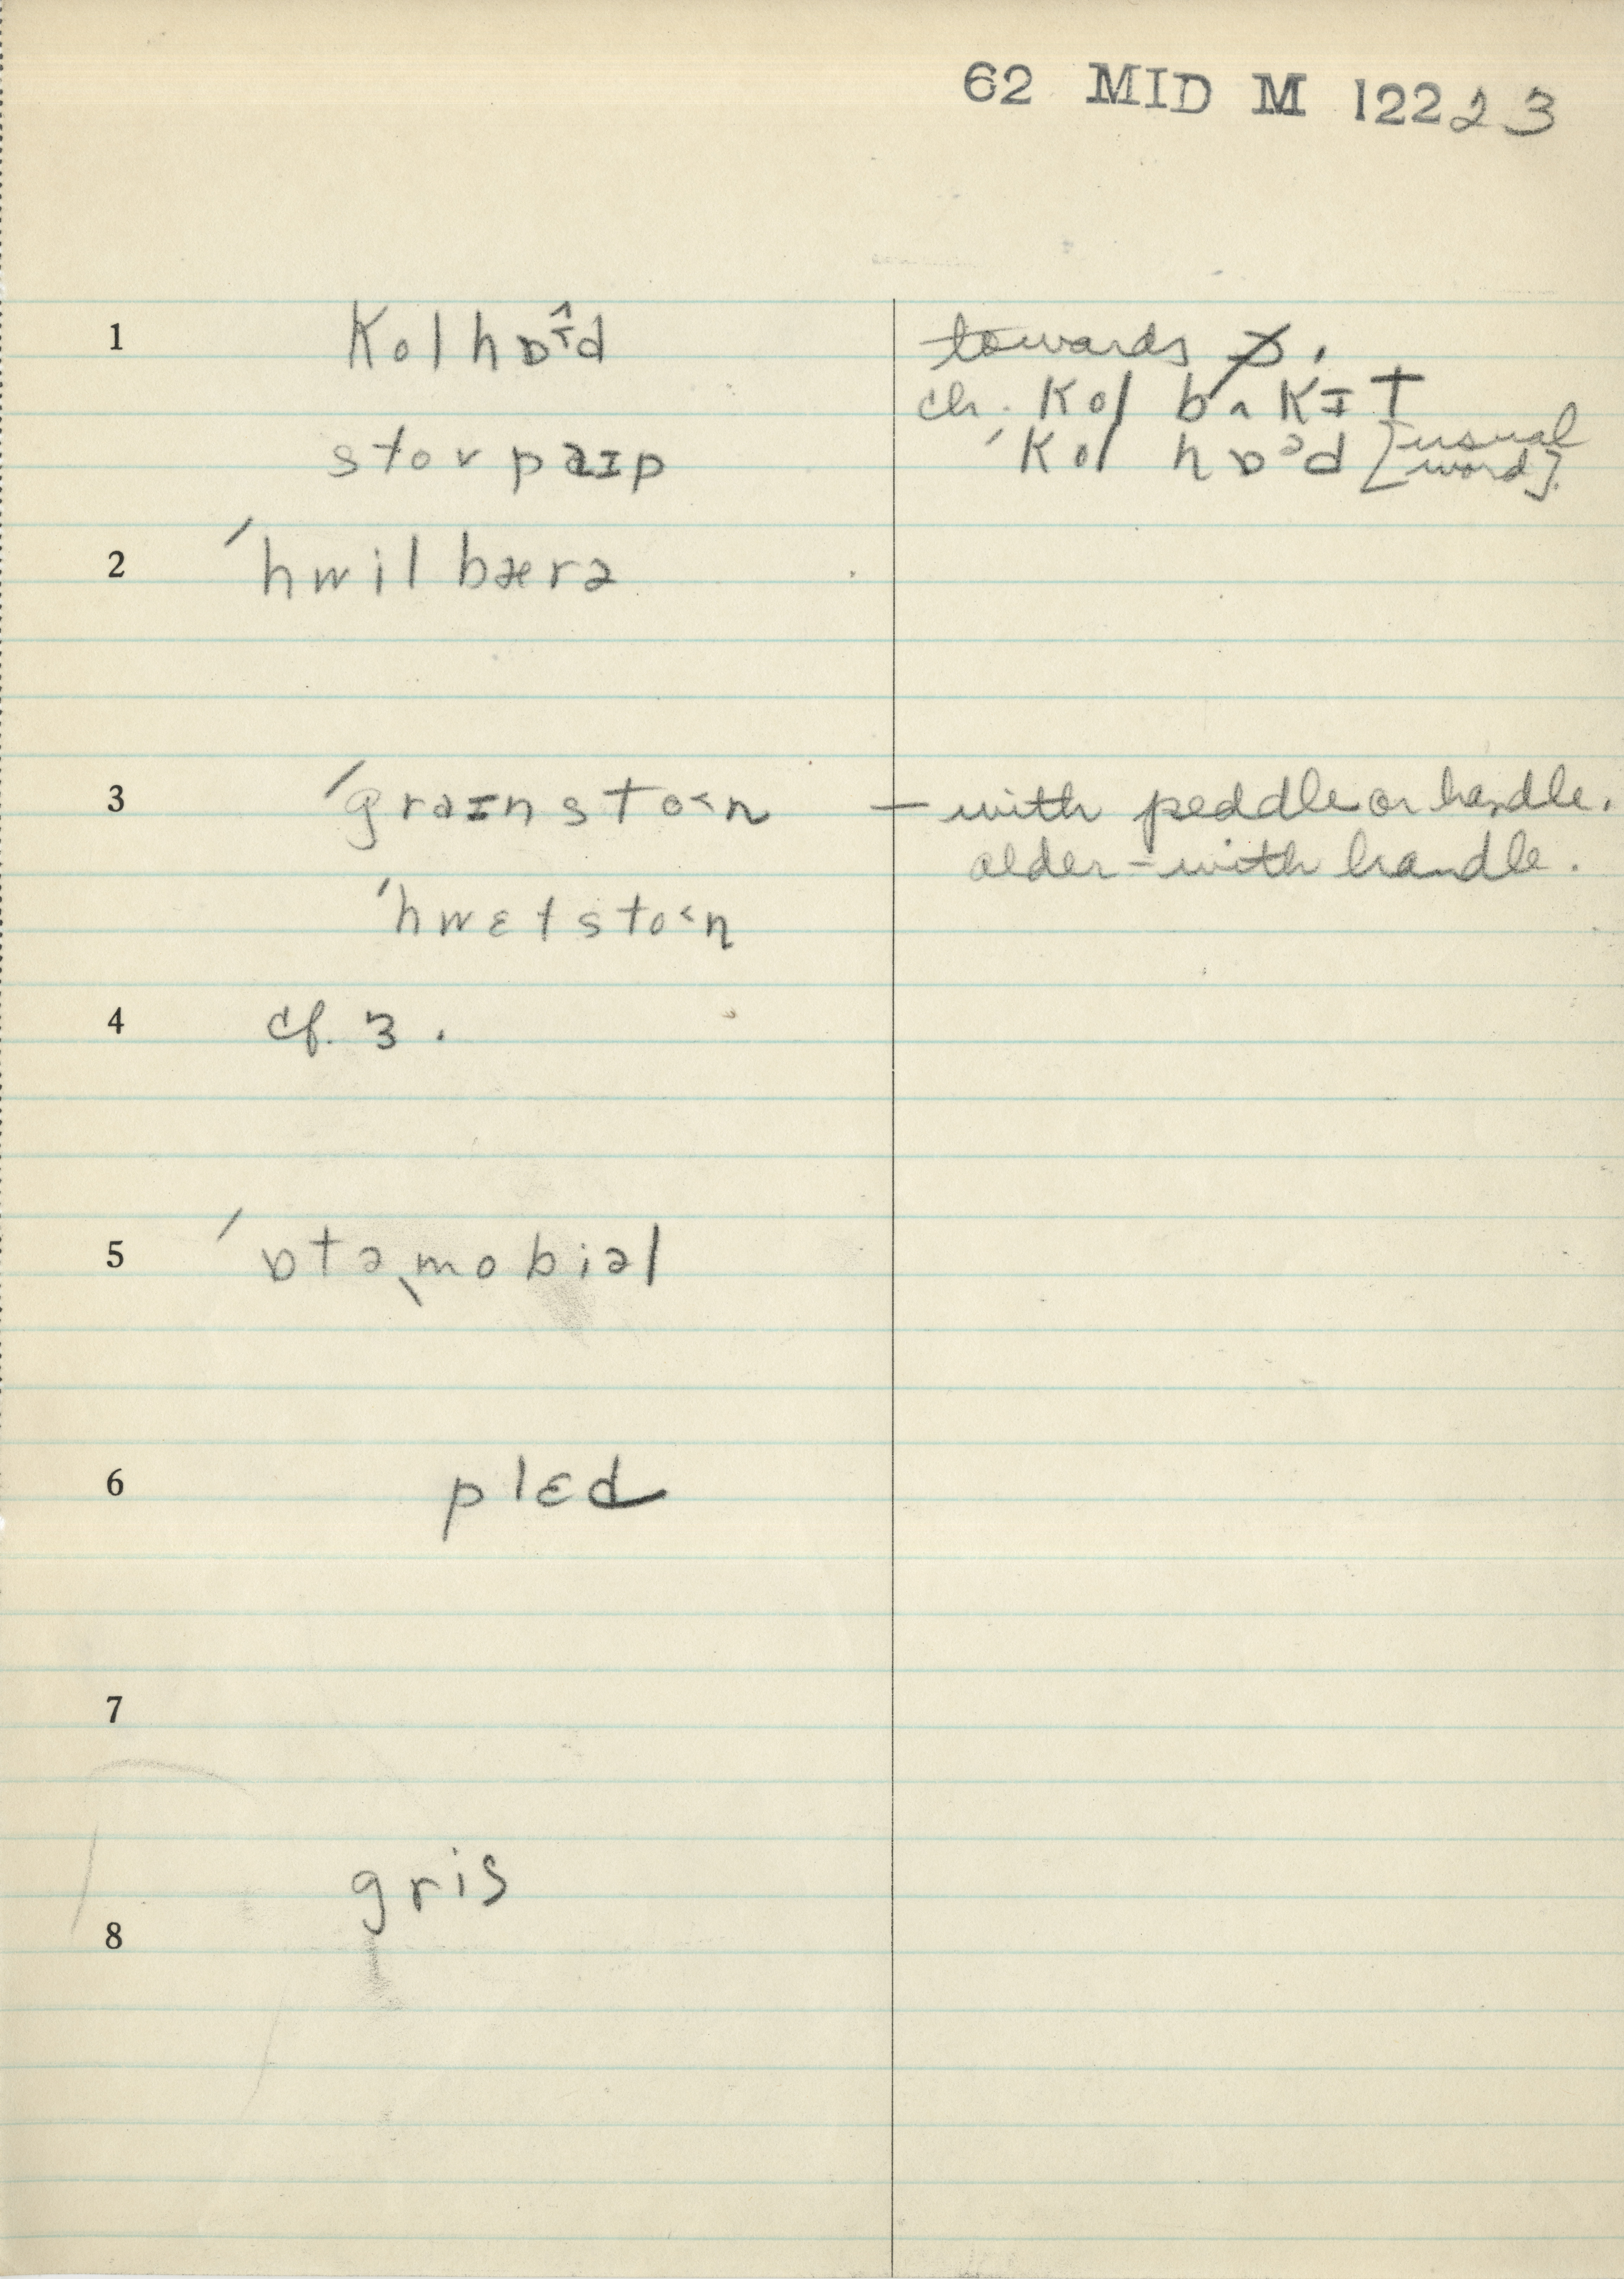 62 MID M 12223
1 kolhɒɪ̂d towards ɔ.
ch. kol bʌkɪt
stovpaɪp ˊkol hɒᵊd [usual word].
2 ˊhwilbærə
3 ˊgraɪnsto˂n — with peddle or handle.
older - with handle.
ˊhwɛtsto˂n
4 cf. 3.
5 ˊɒtəˎmobiəl
6 plɛd
7
gris
8